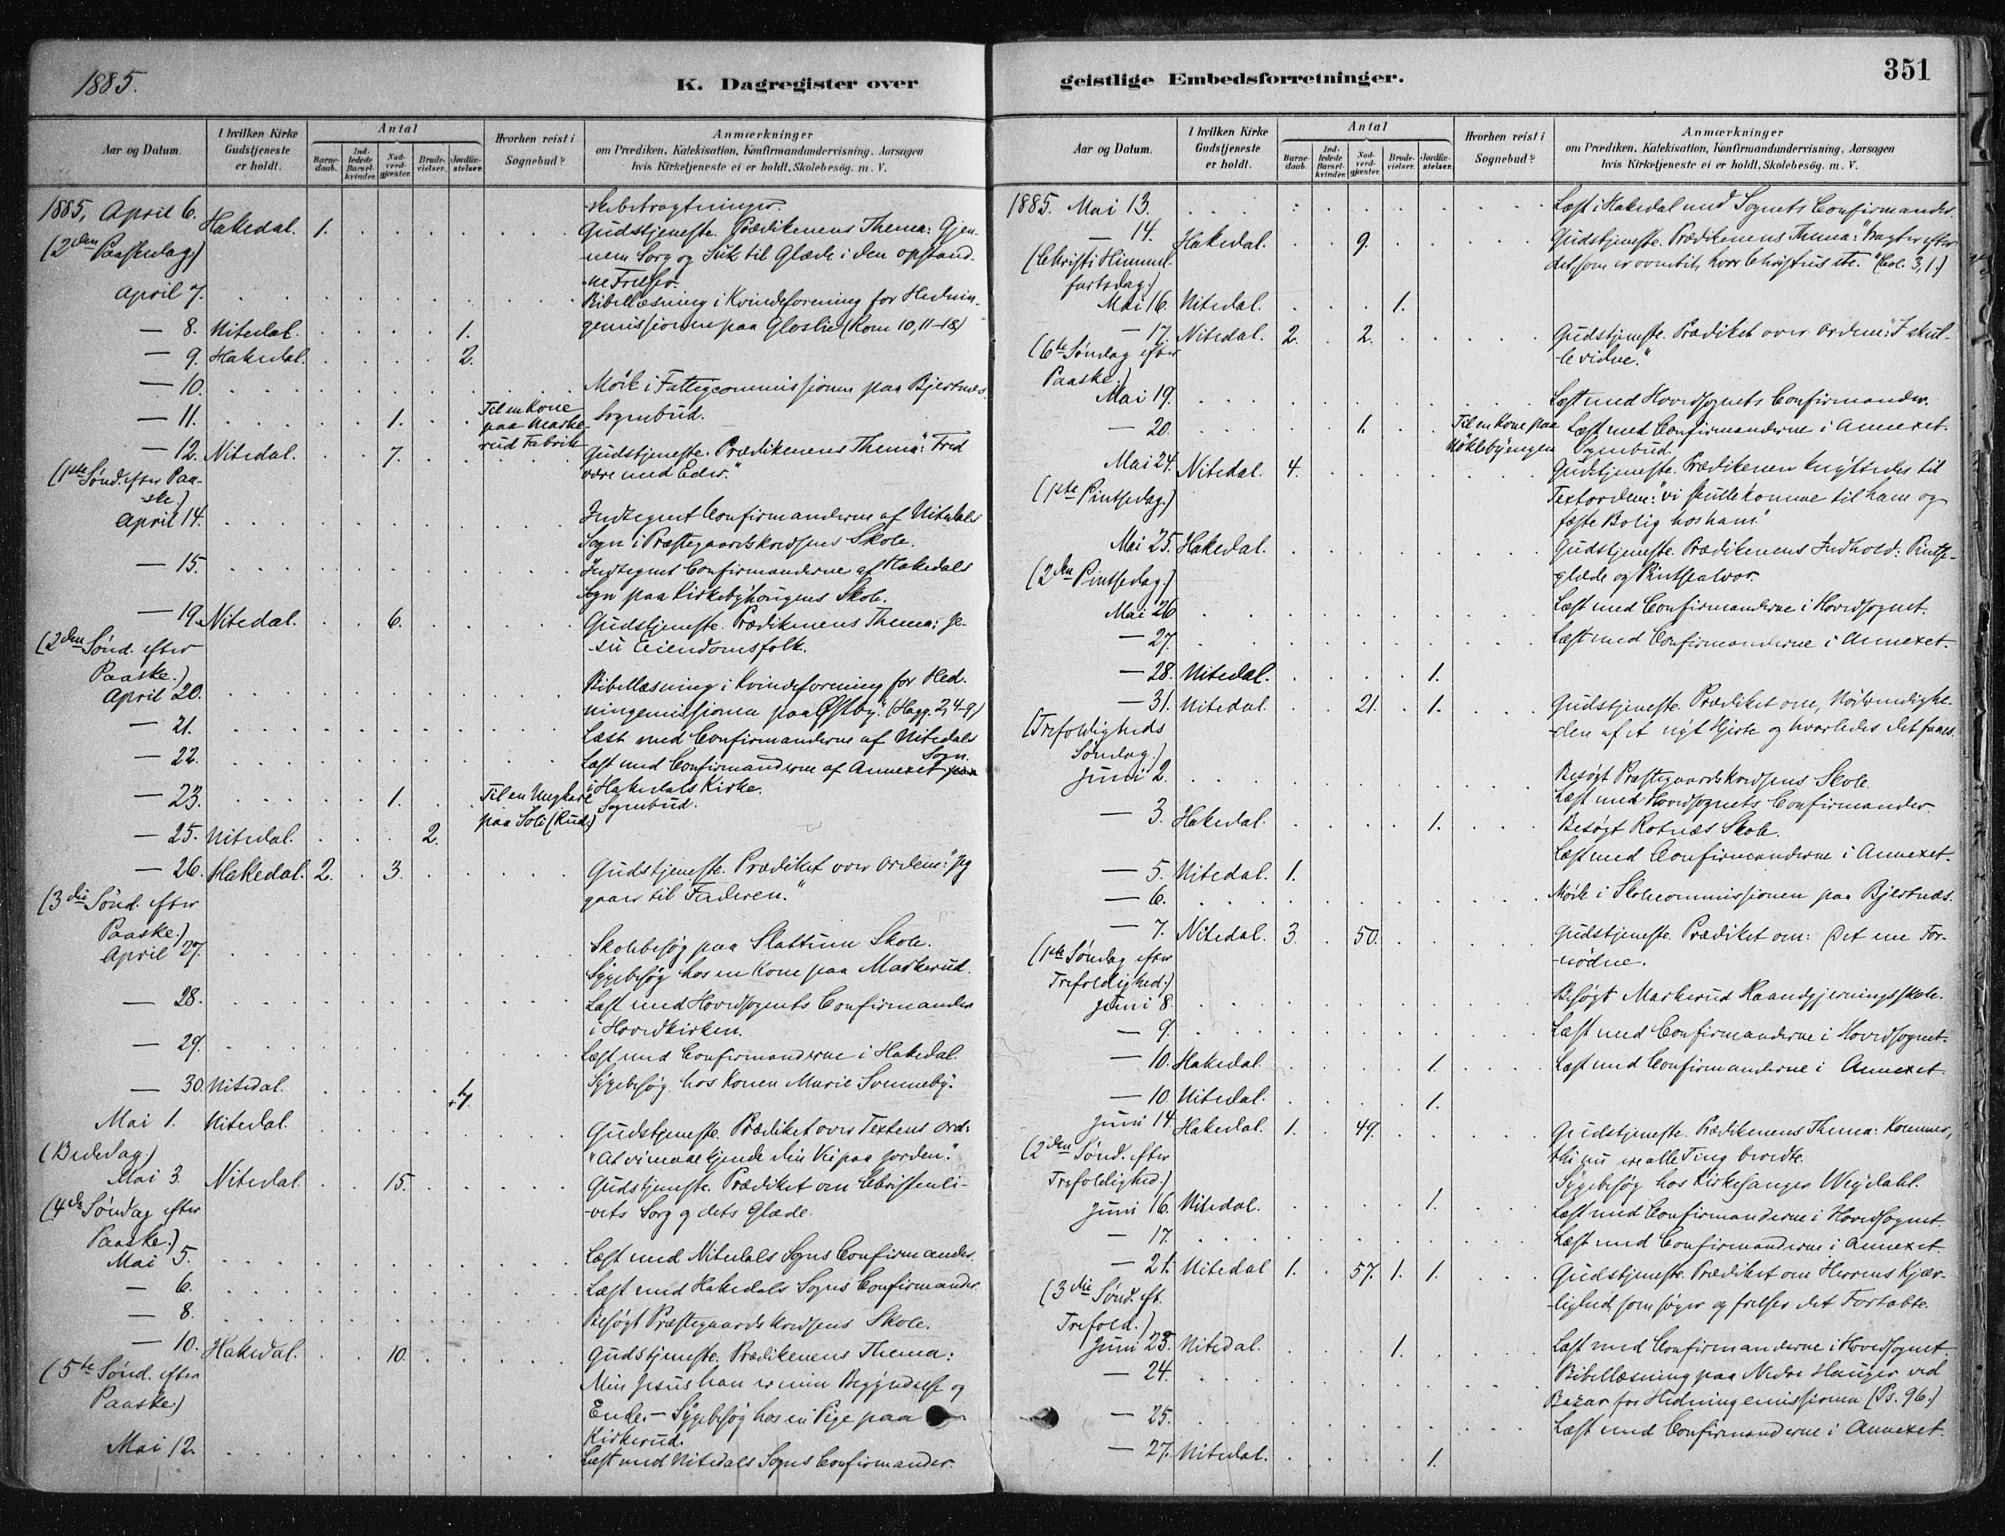 1885.
K. Dagregister over
Aar og Datum.
I hvilken Kirke Gudstjeneste er holdt.
Antal
Barnedaab.
Indledede Barselkvinder.
Nadverdgjester.
Brudevielser.
Jordfæstelser.
Hvorhen reist i Sognebud?
Anmærkninger
om Prædiken, Katekisation, Konfirmandundervisning. Aarsagen
hvis Kirketjeneste ei er holdt, Skolebesøg. m. V.
1885, April 6. Hakedal. 1. Gudstjeneste. Prædikenens Thema: Gjen-
(2den Paaskedag) nem Sorg og Suk til Glæde i den opstand-
ne Frelser.
April 7. Bibellæsning i Kvindeforening for Hednin-
— 8. Nitedal. 1. gemissionen paa (Rom 10, 11-18)
— 9. Hakedal. 2.
— 10. Møde i Fattigcommissionen paa Bjertnæs.
— 11. 1. Til en Kone paa Markerud Fabrik Sognebud.
— 12. Nitedal. 7. Gudstjeneste. Prædikenens Thema: "Fred
(1ste Sønd. efter Paaske) være med Eder."
April 14. Indtegnet Confirmanderne af Nitedals
Sogn i Præstegaardskredsens Skole.
— 15. Indtegnet Confirmanderne af Hakedals
Sogn paa Kirkebyhougens Skole.
— 19. Nitedal. 6. Gudstjeneste. Prædikenens Thema: Je-
(2den Sønd. efter su Eiendomsfolk.
Paaske.)
April 20. Bibellæsning i Kvindeforening for Hed-
ningemissionen paa Østby. (Hagg. 2, 4-9)
— 21. Læst med Confirmanderne af Nitedals
Sogn.
— 22. Læst med Confirmanderne af Annexet
i Hakedals Kirke.
— 23. 1. Til en Ungkarl paa Soli (Rud.) Sognebud.
— 25. Nitedal. 2.
— 26. Hakedal. 2. 3. Gudstjeneste. Prædiket over Ordene: "Jeg
(3die Sønd. efter gaaer til Faderen."
Paaske.)
April 27. Skolebesøg paa Slattum Skole.
Sygebesøg hos en Kone paa Markerud.
— 28. Læst med Hovedsognets Confirmander
i Hovedkirken.
— 29. Læst med Confirmanderne i Hakedal.
— 30. Nitedal. 4. Sygebesøg hos Konen Marie Sonneby.
Mai 1. Nitedal. Gudstjeneste. Prædiket over Textens Ord:
(Bededag.) "At vi maae kjende din Vei paa Jorden."
Mai 3. Nitedal. 15. Gudstjeneste. Prædiket om Christenli-
(4de Søndag efter vets Sorg og dets Glæde.
Paaske.)
Mai 5. Læst med Nitedals Sogns Confirmander.
— 6. Læst med Hakedals Sogns Confirmander.
— 8. Besøgt Præstegaardskredsens Skole.
— 10. Hakedal. 10. Gudstjeneste. Prædikenens Thema:
(5te Sønd. efter Min Jesus han er min Begyndelse og
Paaske) Ende. — Sygebesøg hos en Pige paa
Kirkerud.
Mai 12. Læst med Nitedals Sogns Confirmander.
geistlige Embedsforretninger.
351
Aar og Datum.
I hvilken Kirke Gudstjeneste er holdt.
Antal
Barnedaab.
Indledede Barselkvinder.
Nadverdgjester.
Brudevielser.
Jordfæstelser.
Hvorhen reist i Sognebud?
Anmærkninger
om Prædiken, Katekisation, Konfirmandundervisning, Aarsagen
hvis Kirketjeneste ei er holdt, Skolebesøg. m. V.
1885. Mai 13. Læst i Hakedal med Sognets Confirmander.
— 14. Hakedal. 9. Gudstjeneste. Prædikenens Thema: "Tragter efter
(Christi Himmel- det, som er oventil, hvor Christus er." (Col. 3, 1.)
fartsdag.)
Mai 16. Nitedal. 1.
— 17. Nitedal. 2. 2. Gudstjeneste. Prædiket over Ordene: "I skul-
(6te Søndag efter le vidne."
Paaske.)
Mai 19. Læst med Hovedsognets Confirmander.
— 20. 1. Til en Kone paa Møklebyengen Læst med Confirmanderne i Annexet.
Sognebud.
Mai 24. Nitedal. 4. Gudstjeneste. Prædikenen knyttedes til
(1ste Pintsedag.) Textordene: "vi skulle komme til ham og
fæste Bolig hos ham."
Mai 25. Hakedal. Gudstjeneste. Prædikenens Indhold: Pintse-
(2den Pintsedag.) glæde og Pintsealvor.
Mai 26 Læst med Confirmanderne i Hovedsognet.
— 27. Læst med Confirmanderne i Annexet.
— 28. Nitedal. 1.
— 31. Nitedal. 21. 1. Gudstjeneste. Prædiket om, Nødvendighe-
(Trefoldigheds den af et nyt Hjerte og hvorledes det faaes.
Søndag.)
Juni 2. Besøgt Præstegaardskredsens Skole.
Læst med Hovedsognets Confirmander.
— 3. Hakedal. 1. Besøgt Rotnæs Skole.
Læst med Confirmanderne i Annexet.
— 5. Nitedal. 1.
— 6. Møde i Skolecommissionen paa Bjertnæs.
— 7. Nitedal. 3. 50. Gudstjeneste. Prædiket om: Det ene For-
(1ste Søndag efter nødne.
Trefoldighed.)
Juni 8. Besøgt Markerud Haandgjerningsskole.
— 9. Læst med Confirmanderne i Hovedsognet.
— 10. Hakedal. 1. Læst med Confirmanderne i Annexet.
— 10. Nitedal. 1.
Juni 14. Hakedal. 1. 49. Gudstjeneste. Prædikenens Thema: Kommer,
(2den Sønd. efter thi nu ere alle Ting beredte.
Trefoldighed.) Sygebesøg hos Kirkesanger Weydahl.
Juni 16. Nitedal. 1. Læst med Confirmanderne i Hovedsognet.
— 17. Læst med Confirmanderne i Annexet.
— 21. Nitedal 1. 57. 1. 1. Gudstjeneste. Prædiket om Herrens Kjær-
(3die Sønd. eft. lighed, som søger og frelser det Fortabte.
Trefold.)
Juni 23. Nitedal. 1. Læst med Confirmanderne i Hovedsognet.
— 24. Bibellæsning paa Nedre Hauger ved
Bazar for Hedningemissionen (Ps. 96.)
— 25. Læst med Confirmanderne i Annexet.
— 27. Nitedal. 1.